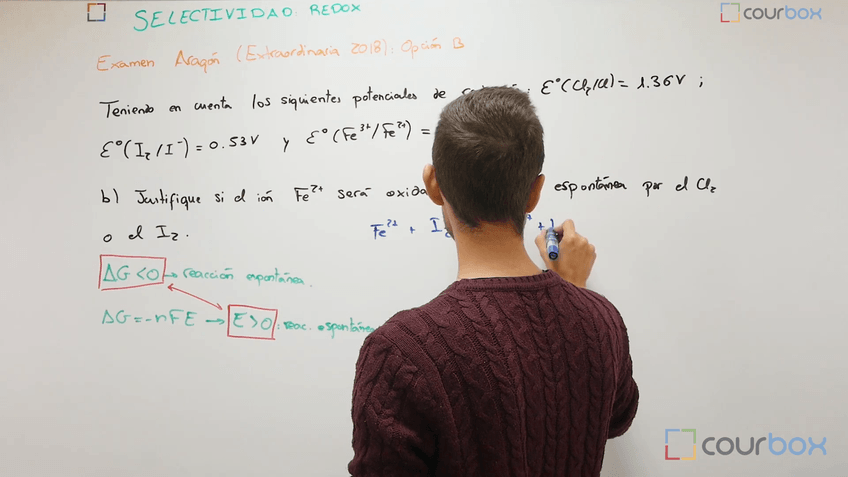 SELECTIVIDAD: REDOX
courbox
Examen Aragón (Extraordinaria 2018): Opción B
Teniendo en cuenta los siguientes potenciales de : Ɛ°(Cl₂/Cl)= 1.36V ;
Ɛ°(I₂/I⁻) = 0.53V y Ɛ°(Fe³⁺/Fe²⁺) =
b) Justifique si el ión Fe²⁺ será oxida espontánea por el Cl₂
o el I₂.
Fe²⁺ + I₂ +
ΔG<0 → reacción espontánea.
ΔG=-nFE → E>0: reac. espontánea
courbox